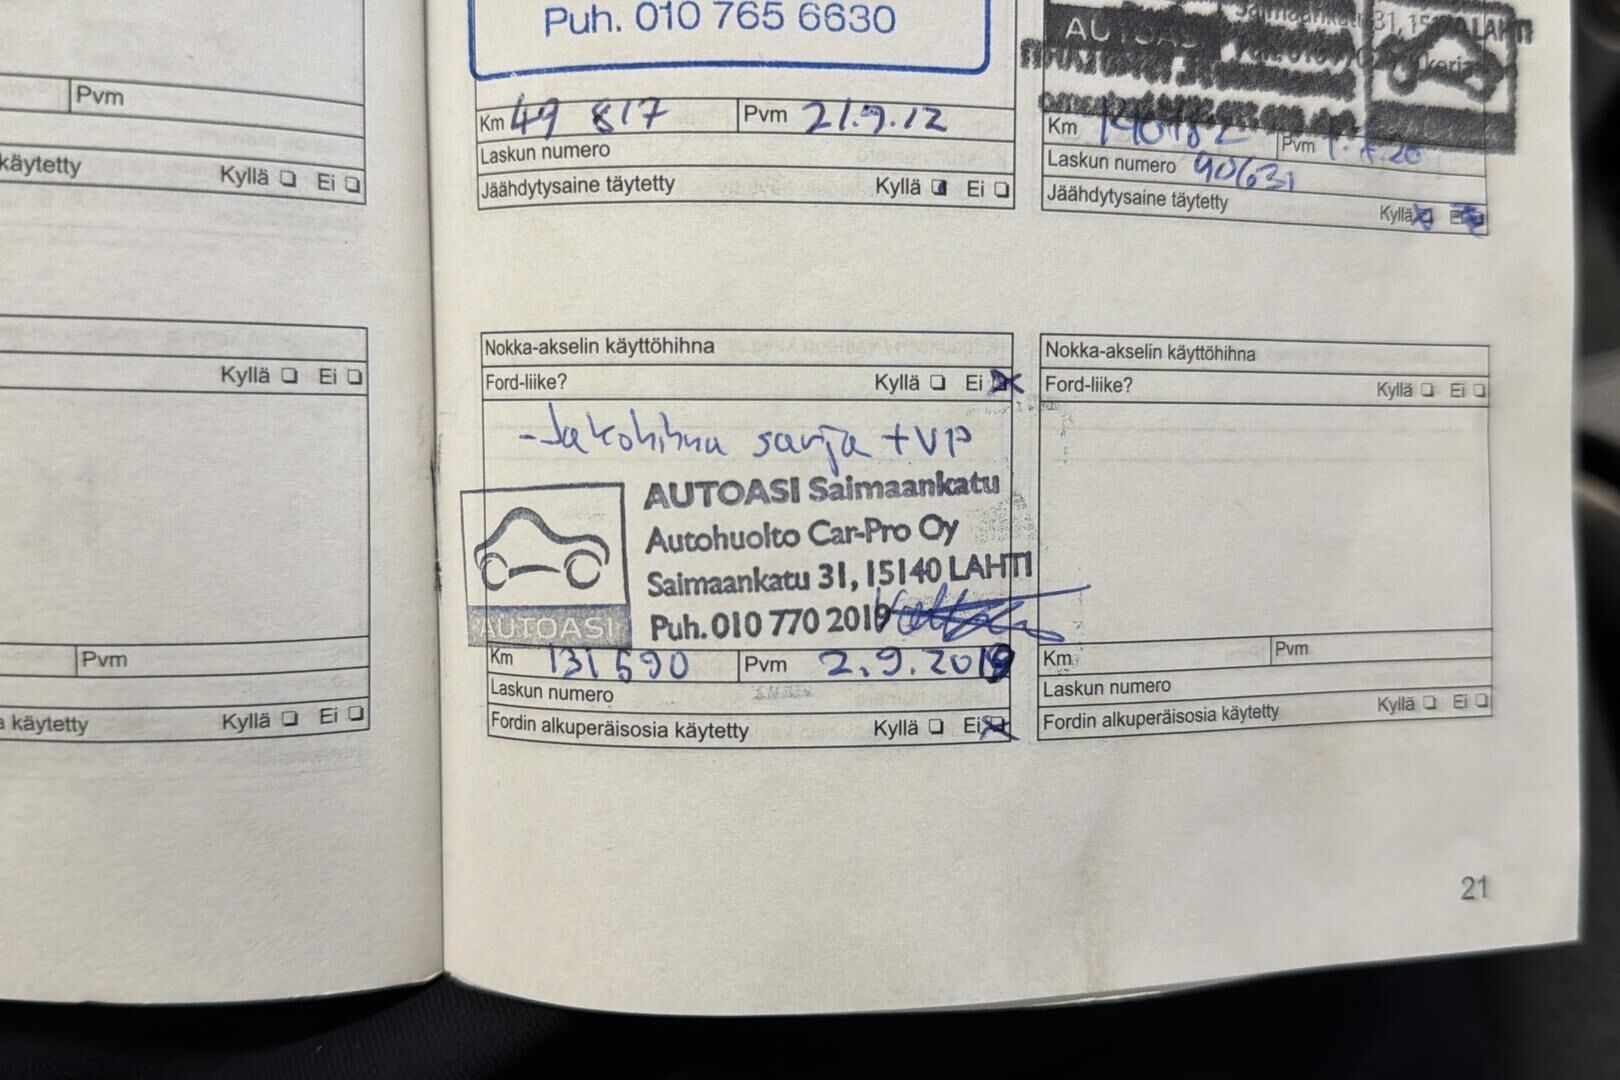 Pvm
käytetty Kyllä Ei
Kyllä Ei
Pvm
käytetty Kyllä Ei
Puh. 010 765 6630
Km 49 817 Pvm 21.9.12
Laskun numero
Jäähdytysaine täytetty Kyllä Ei
31, LAHTI
AUTOASI
Km Pvm
Laskun numero 90631
Jäähdytysaine täytetty Kyllä
Nokka-akselin käyttöhihna
Ford-liike? Kyllä Ei
-Jakohihna sarja + VP
AUTOASI Saimaankatu
Autohuolto Car-Pro Oy
Saimaankatu 31, 15140 LAHTI
Puh. 010 770 2019
AUTOASI
Km 131 590 Pvm 2.9.2019
Laskun numero
Fordin alkuperäisosia käytetty Kyllä Ei
Nokka-akselin käyttöhihna
Ford-liike? Kyllä Ei
Km Pvm
Laskun numero
Fordin alkuperäisosia käytetty Kyllä Ei
21